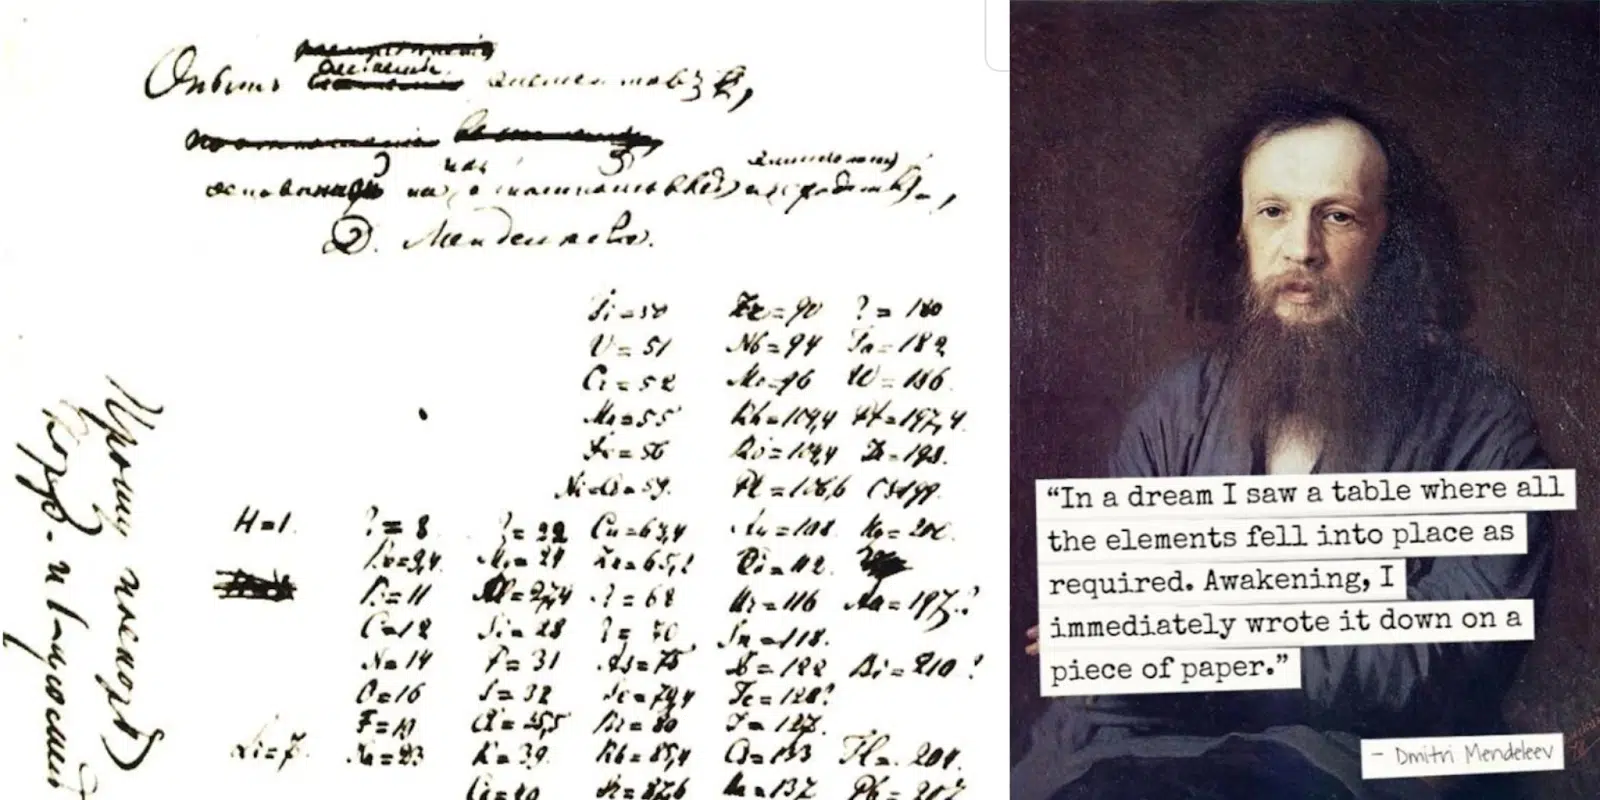 Опытъ элементовъ,
на
Д. Менделѣевъ.
Ti=50 Zr=90 ?=180
V=51 Nb=94 Ta=182
Cr=52 Mo=96 W=186.
Mn=55 Rh=104,4 Pt=197,4.
Fe=56 Ru=104,4 Ir=198.
Ni=Co=59. Pl=106,6 Os=199.
H=1. ?=8 ?=22 Cu=63,4 Ag=108 Hg=200.
Be=9,4 Mg=24 Zn=65,2 Cd=112.
B=11 Al=27,4 ?=68 Ur=116 Au=197?
C=12 Si=28 ?=70 Sn=118.
N=14 P=31 As=75 Sb=122 Bi=210?
O=16 S=32 Se=79,4 Te=128?
F=19 Cl=35,5 Br=80 I=127.
Li=7. Na=23 K=39. Rb=85,4 Cs=133 Tl=204.
Ca=40 Sr=87,6 Ba=137 Pb=207
“In a dream I saw a table where all
the elements fell into place as
required. Awakening, I
immediately wrote it down on a
piece of paper.”
- Dmitri Mendeleev